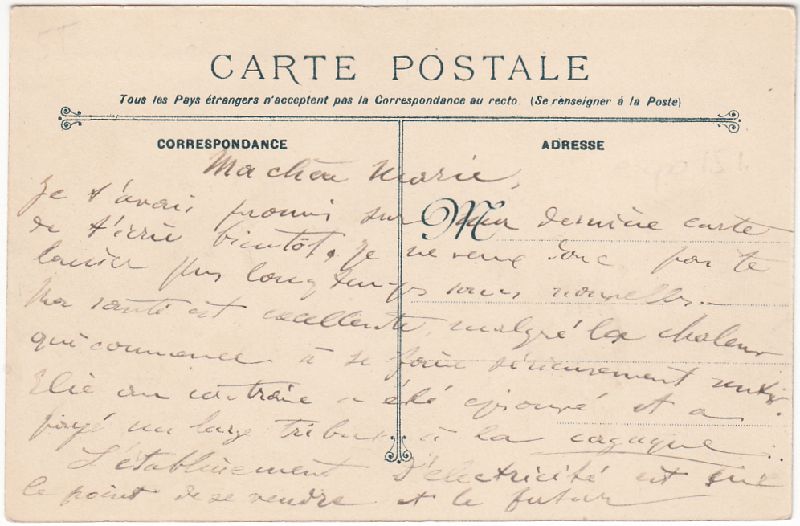 CARTE POSTALE
Tous les Pays étrangers n'acceptent pas la Correspondance au recto. (Se renseigner à la Poste)
CORRESPONDANCE
ADRESSE
M
Ma chère Marie,
Je t'avais promis sur ma dernière carte
de t'écrire bientôt, je ne veux donc pas te
laisser plus longtemps sans nouvelles.
Ma santé est excellente, malgré la chaleur
qui commence à se faire sérieusement sentir.
Elie au contraire a été éprouvé et a
payé un large tribut à la cagagne.
L'établissement d'électricité est sur
le point de se vendre et le futur